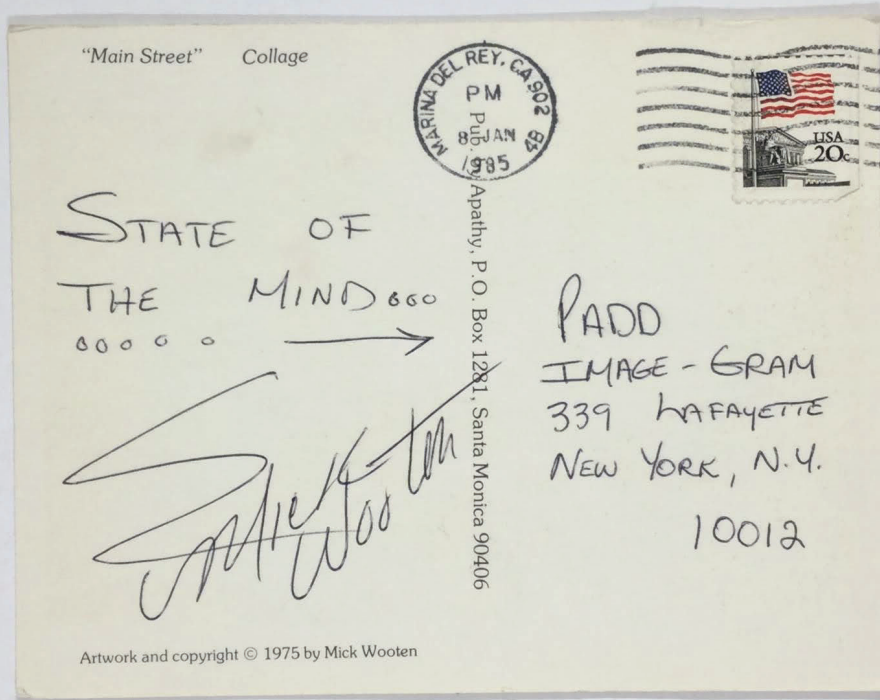 "Main Street" Collage
MARINA DEL REY, CA 902
PM
8 JAN
1985
4B
USA
20c
STATE OF
THE MIND...
.....
Mick
Wooten
Pub. by Apathy, P.O. Box 1281, Santa Monica 90406
PADD
IMAGE-GRAM
339 LAFAYETTE
NEW YORK, N.Y.
10012
Artwork and copyright © 1975 by Mick Wooten